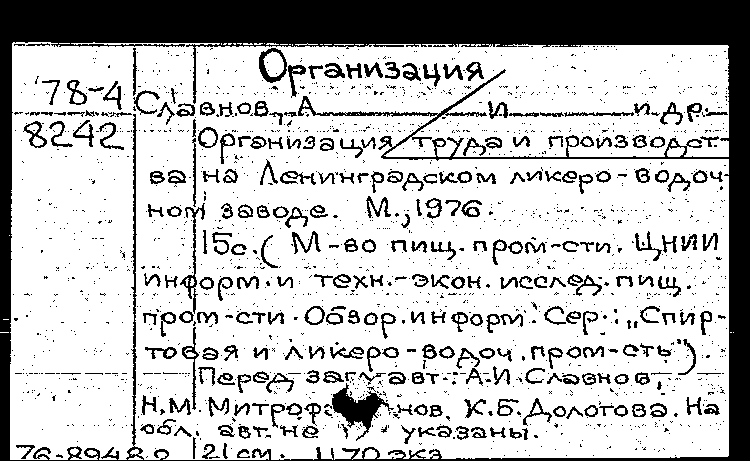 Организация
78-4 Славнов, А И и др.
8242 Организация труда и производст-
ва на Ленинградском ликеро-водоч-
ном заводе. М., 1976.
15с. (М-во пищ. пром-сти. ЦНИИ
информ. и техн.-экон. исслед. пищ.
пром-сти. Обзор. информ. Сер.: „Спир-
товая и ликеро-водоч. пром-сть").
Перед загл. авт.: А.И. Славнов,
Н.М. К.Б. Долотова. На
обл. авт. не указаны.
21см. 1170 экз.